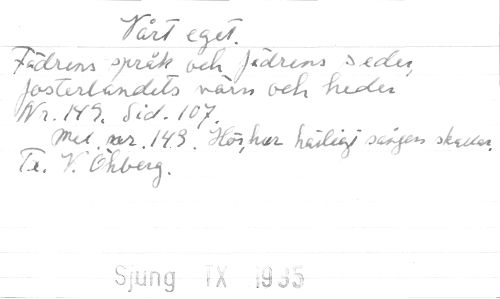 Vårt eget.
Fädrens språk och fädrens seder,
fosterlandets värn och heder
Nr. 149. Sid. 107.
Mel. nr. 149. Hör, hur härligt sången skallar.
Te. V. Öhberg.
Sjung IX 1935